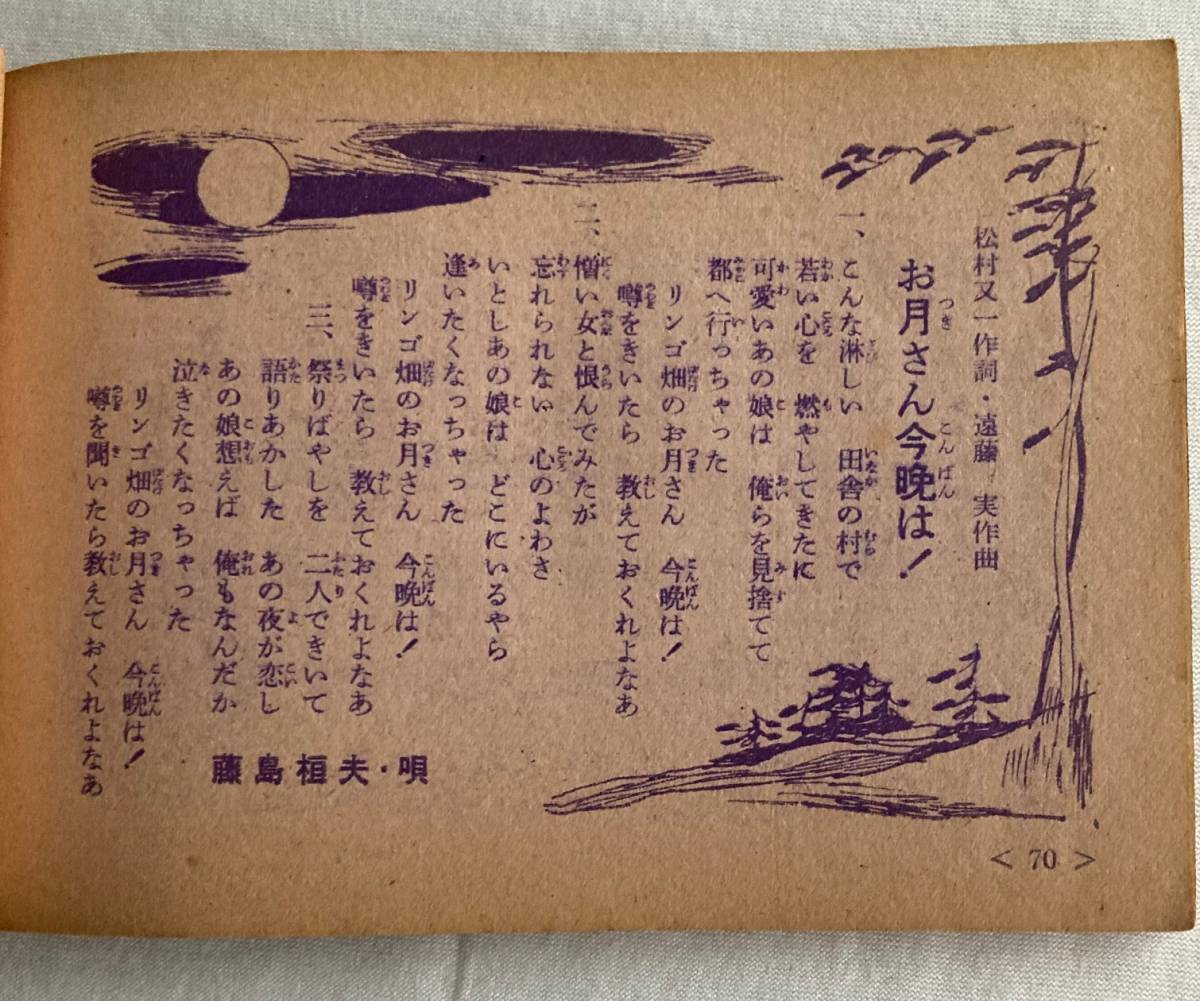 松村又一作詞・遠藤 実作曲
お月さん今晩は！
一、
こんな淋しい 田舎の村で
若い心を 燃やしてきたに
可愛いあの娘は 俺らを見捨てて
都へ行っちゃった
リンゴ畑のお月さん 今晩は！
噂をきいたら 教えておくれよなあ
二、
憎い女と恨んでみたが
忘れられない 心のよわさ
いとしあの娘は どこにいるやら
逢いたくなっちゃった
リンゴ畑のお月さん 今晩は！
噂をきいたら 教えておくれよなあ
三、
祭りばやしを 二人できいて
語りあかした あの夜が恋し
あの娘想えば 俺もなんだか
泣きたくなっちゃった
リンゴ畑のお月さん 今晩は！
噂を聞いたら教えておくれよなあ
藤島桓夫・唄
< 70 >